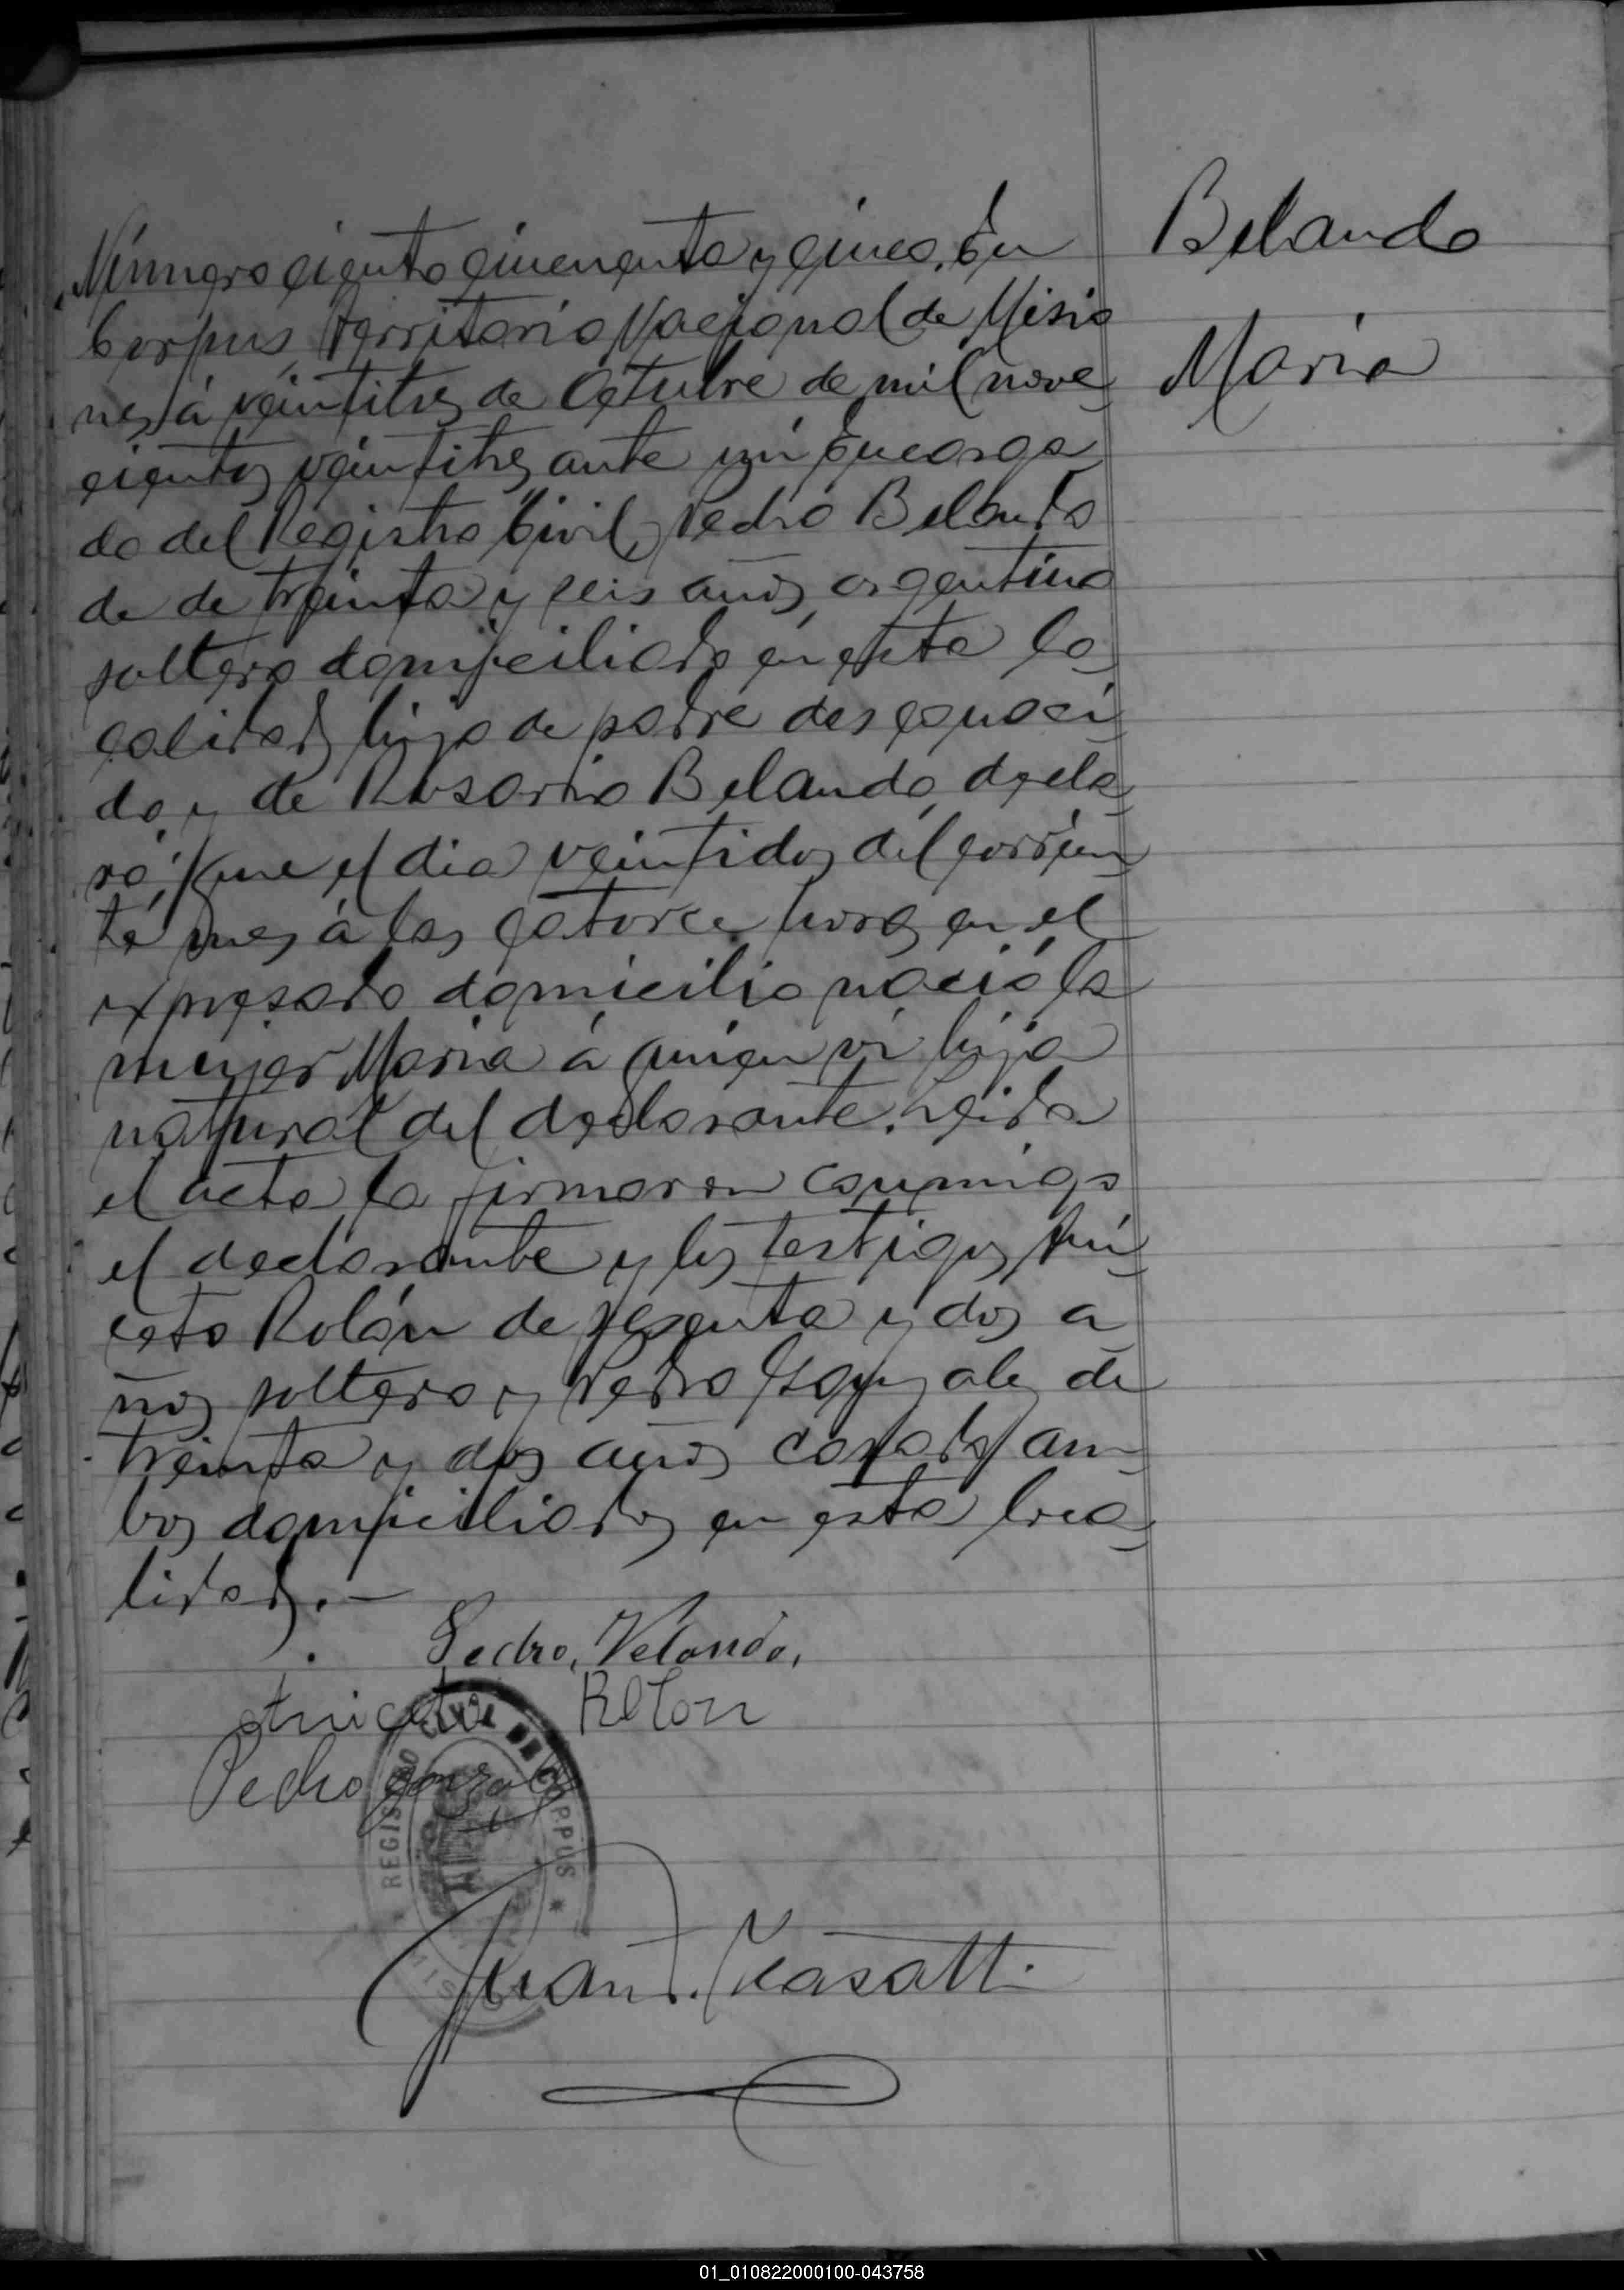 Número ciento cincuenta y cinco. En
Corpus, Territorio Nacional de Misio
nes, á veintitres de Octubre de mil nove
cientos veintitres ante mí Encarga
do del Registro Civil, Pedro Belando
de de treinta y seis años, argentino
soltero domiciliado en esta lo
calidad, hijo de padre desconoci
do y de Rosario Belando, decla
ró: Que el dia veintidos del corrien
te mes á las catorce horas en el
expresado domicilio nació la
mujer Maria á quien ví hija
natural del declarante. Leida
el acta la firmaron conmigo
el declarante y los testigos Ani
ceto Rolón de sesenta y dos a
ños soltero, y Pedro Gonzalez de
treinta y dos años casado, am
bos domiciliados en esta loca
lidad.—
Belando
Maria
Pedro, Velando,
Aniceto Rolon
Pedro Gonzalez
REGISTRO CIVIL DE CORPUS
Juan F. Casatti
01_010822000100-043758